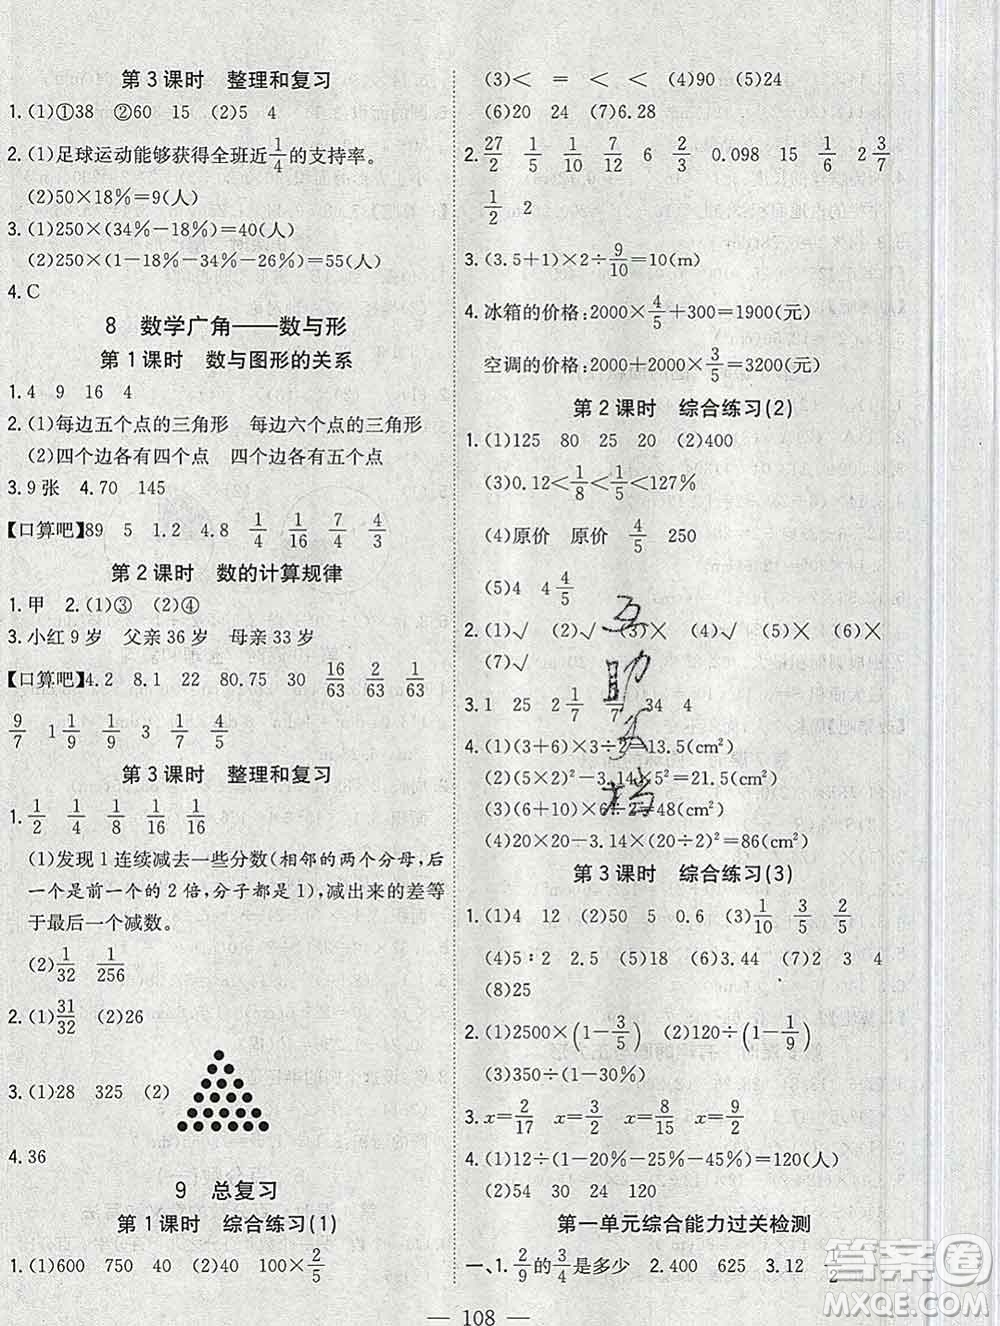 第3课时　整理和复习
1.(1)①38　②60　15　(2)5　4
2.(1)足球运动能够获得全班近1/4的支持率。
(2)50×18%=9(人)
3.(1)250×(34%-18%)=40(人)
(2)250×(1-18%-34%-26%)=55(人)
4.C
8　数学广角——数与形
第1课时　数与图形的关系
1.4　9　16　4
2.(1)每边五个点的三角形　每边六个点的三角形
(2)四个边各有四个点　四个边各有五个点
3.9张　4.70　145
【口算吧】89　5　1.2　4.8　1/4　1/16　7/16　3/4
第2课时　数的计算规律
1.甲　2.(1)③　(2)④
3.小红9岁　父亲36岁　母亲33岁
【口算吧】4.2　8.1　22　80.75　30　16/63　2/63　1/63
9/7　1/9　1/9　3
第3课时　整理和复习
1.1/2　1/4　1/8　1/16　1/16
(1)发现1连续减去一些分数(相邻的两个分母,后
一个是前一个的2倍,分子都是1),减出来的差等
于最后一个减数。
(2)1/32　1/256
2.(1)31/32　(2)26
3.(1)28　325　(2)
4.36
9　总复习
第1课时　综合练习(1)
1.(1)600　750　40　(2)100×2/5
(3)<　=　<　<　(4)90　(5)24
(6)20　24　(7)6.28
2.27/2　1/5　1/10　7/12　6　2/3　0.098　15　1/6　2 3/7
1/2　2
3.(3.5+1)×2÷9/10=10(m)
4.冰箱的价格:2000×4/5+300=1900(元)
空调的价格:2000+2000×3/5=3200(元)
第2课时　综合练习(2)
1.(1)125　80　25　20　(2)400
(3)0.12<1/8<1/5<127%
(4)原价　原价　4/5　250
(5)4　4 4/5
2.(1)√　(2)√　(3)×　(4)√　(5)×　(6)×
(7)√
3.1　25　2 1/7　1/7　34　4
4.(1)(3+6)×3÷2=13.5(cm²)
(2)(5×2)²-3.14×5²=21.5(cm²)
(3)(6+10)×6÷2=48(cm²)
(4)20×20-3.14×(20÷2)²=86(cm²)
第3课时　综合练习(3)
1.(1)4　12　(2)50　5　0.6　(3)1/10　3/5　2/5
(4)5∶2　2.5　(5)18　(6)144　(7)2　3　4
(8)25
2.(1)2500×(1-3/5)　(2)120÷(1-1/9)
(3)350÷(1-30%)
3.x=2/17　x=3/5　x=8/15　x=9/2
4.(1)12÷(1-20%-25%-45%)=120(人)
(2)54　30　24　120　(3)略
第一单元综合能力过关检测
一、1.2/9的3/4是多少　2.400　625　3.12　1/2
108
互
助
文
档
答案圈
MXQE.COM